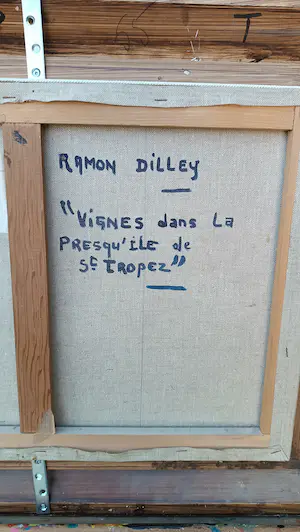 RAMON DiLLEY
"ViGNES dans La
PRESQU'ILE de
St TROPEZ"
T